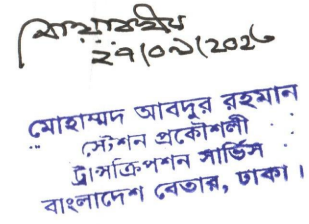 ২৭/০৯/২০২৩
মোহাম্মদ আবদুর রহমান
স্টেশন প্রকৌশলী
ট্রান্সক্রিপশন সার্ভিস
বাংলাদেশ বেতার, ঢাকা।